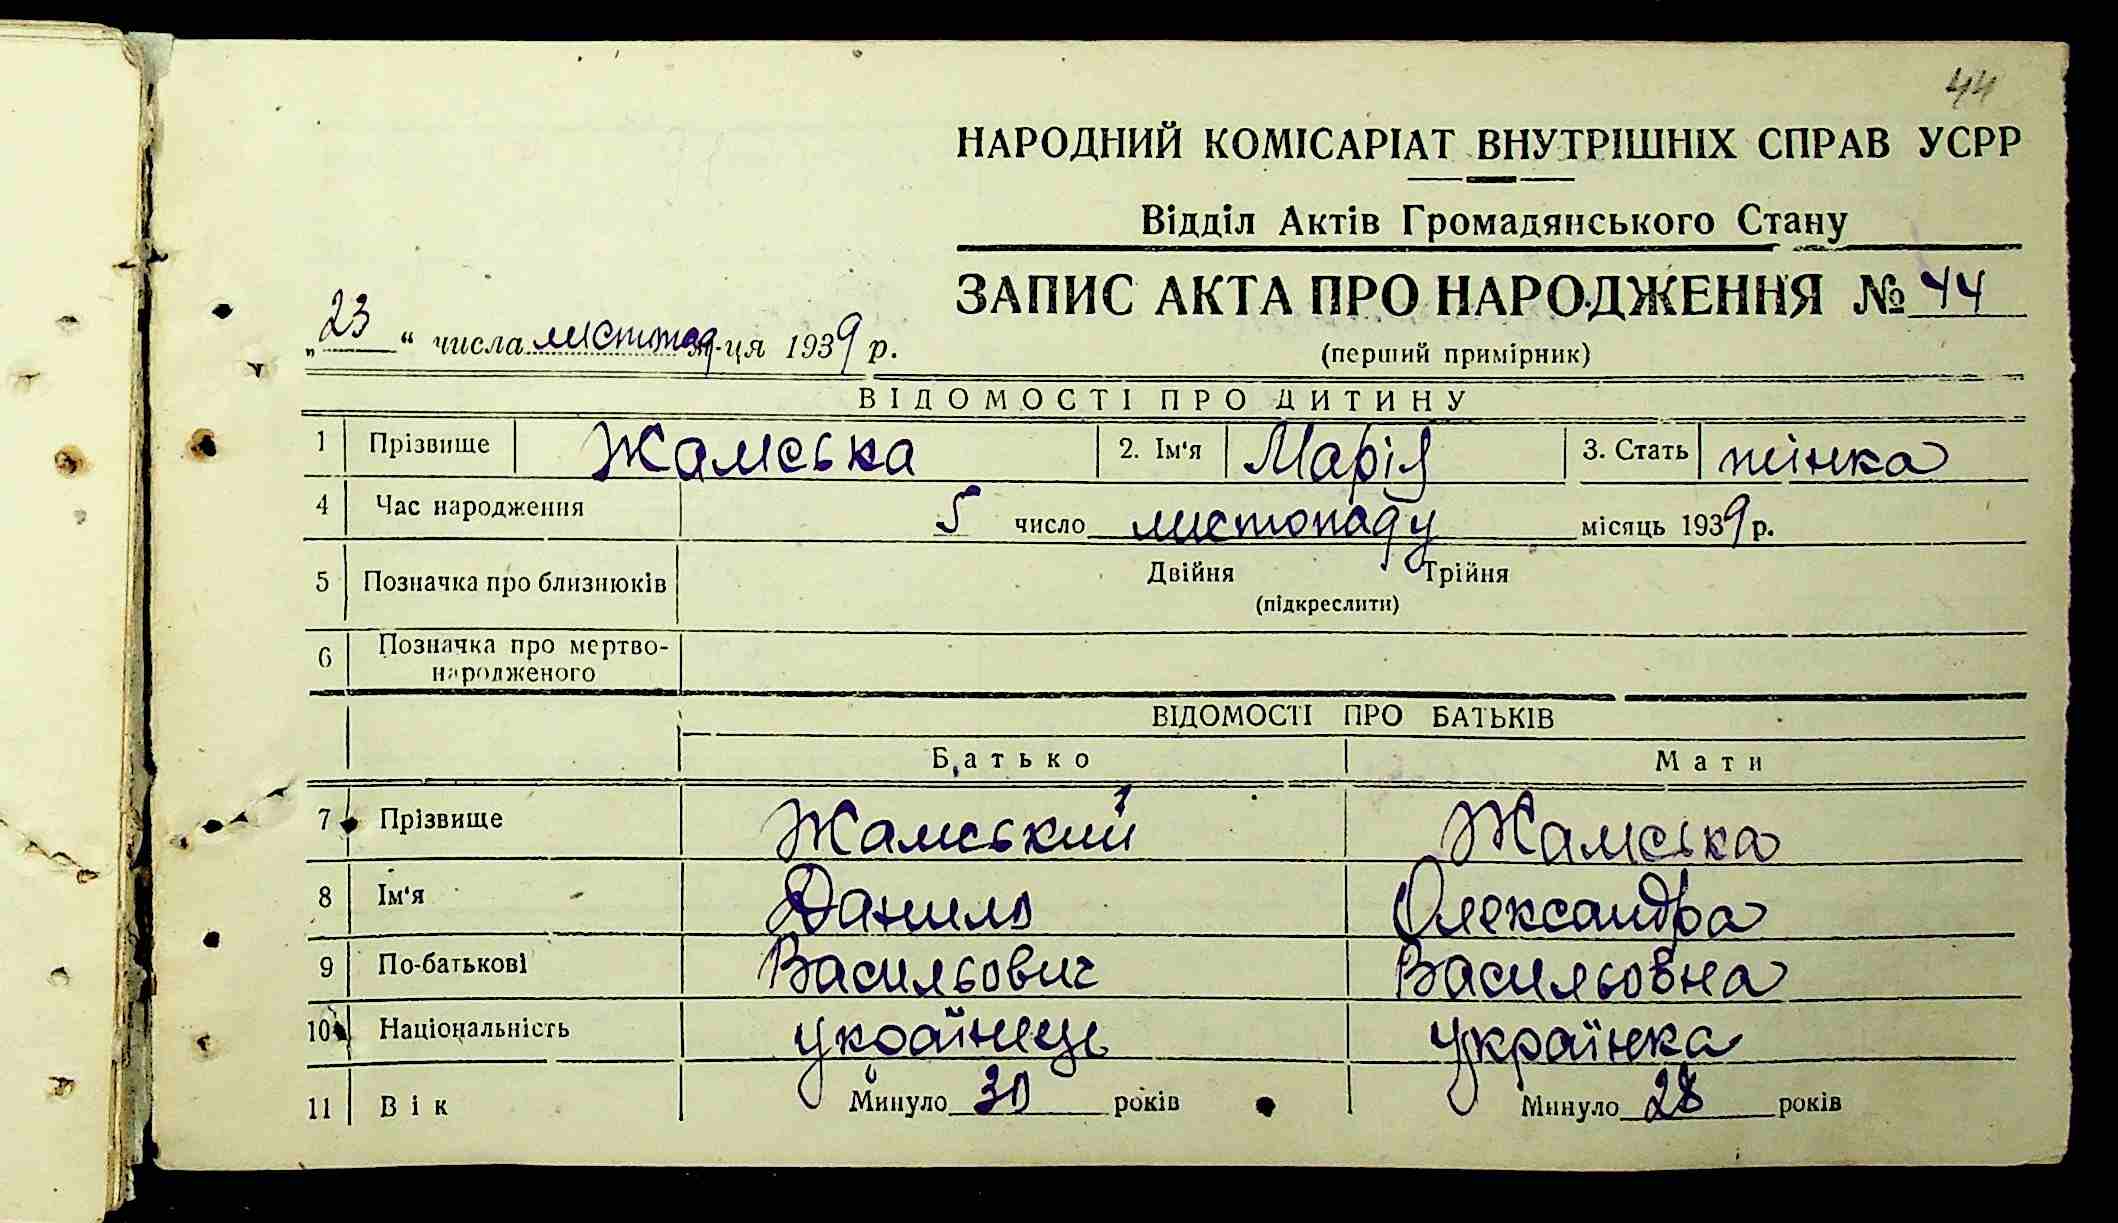 44
НАРОДНИЙ КОМІСАРІАТ ВНУТРІШНІХ СПРАВ УСРР
Відділ Актів Громадянського Стану
ЗАПИС АКТА ПРО НАРОДЖЕННЯ № 44
„23“ числа листопад м-ця 1939 р.
(перший примірник)
ВІДОМОСТІ ПРО ДИТИНУ
1 Прізвище Жамська 2. Ім'я Марія 3. Стать жінка
4 Час народження 5 число листопаду місяць 1939 р.
5 Позначка про близнюків Двійня Трійня
(підкреслити)
6 Позначка про мертво-
народженого
ВІДОМОСТІ ПРО БАТЬКІВ
Батько Мати
7 Прізвище Жамський Жамська
8 Ім'я Данило Олександра
9 По-батькові Васильович Васильовна
10 Національність українець українка
11 Вік Минуло 30 років Минуло 28 років